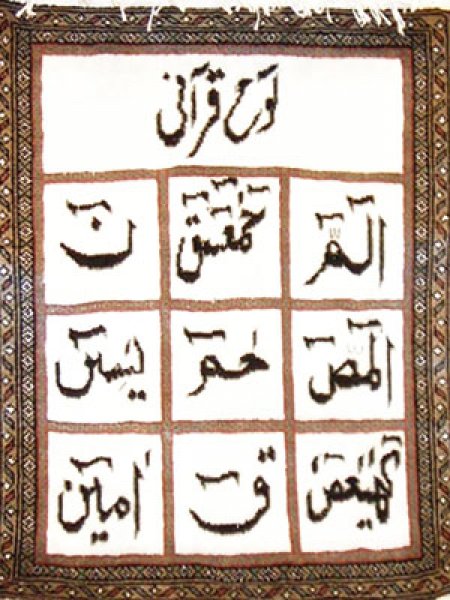 لوح قرآنی
الٓمٓ حمٓعٓسٓقٓ نٓ
الٓمٓصٓ حٰمٓ یٰسٓ
کٓهٰیٰعٓصٓ قٓ اٰمین